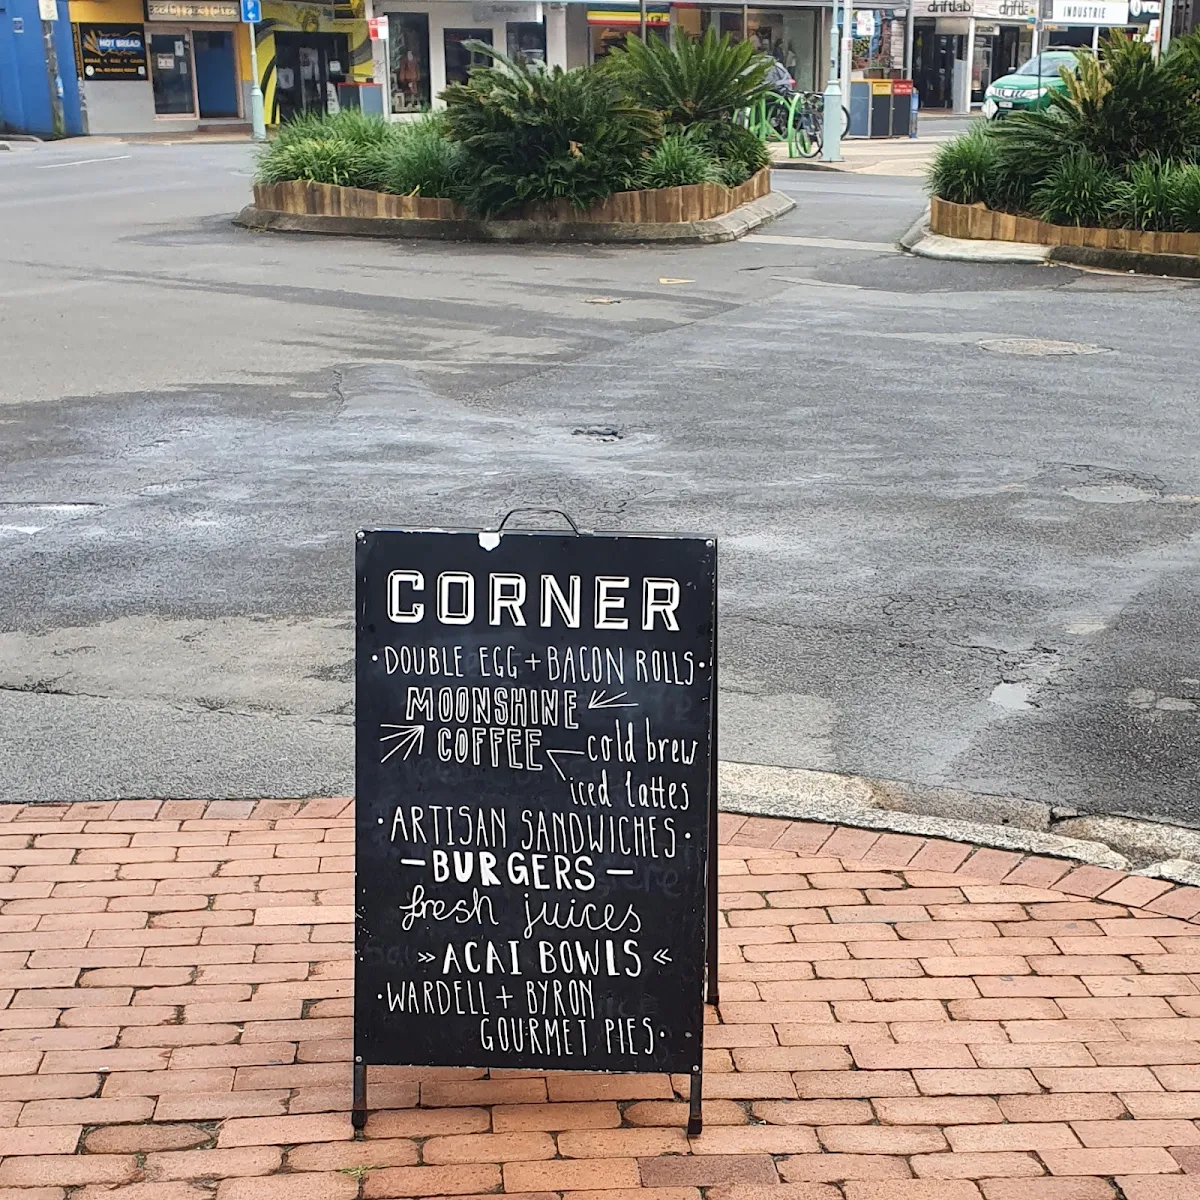 HOT BREAD
driftlab
INDUSTRIE
CORNER
•DOUBLE EGG + BACON ROLLS•
MOONSHINE
COFFEE
cold brew
iced lattes
•ARTISAN SANDWICHES•
—BURGERS—
fresh juices
»ACAI BOWLS«
•WARDELL + BYRON
GOURMET PIES•